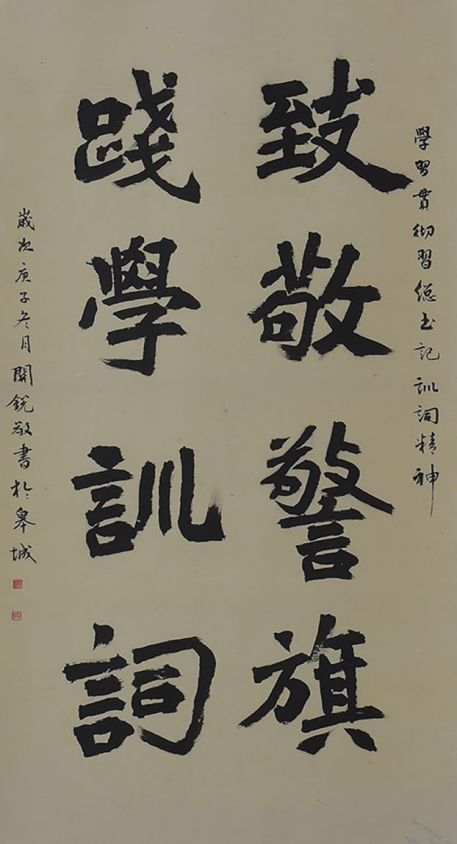 學習貫彻習總书記訓詞精神
致敬警旗
踐學訓詞
歲次庚子冬月關銳敬書於皋城